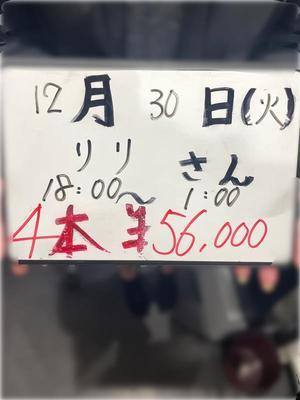 12月30日(火)
リリさん
18:00〜1:00
4本¥56,000